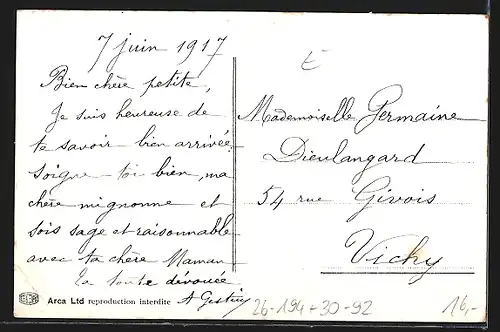 7 juin 1917
Bien chère petite,
Je suis heureuse de
te savoir bien arrivée.
soigne-toi bien, ma
chère mignonne et
sois sage et raisonnable
avec ta chère Maman
Ta toute dévouée
A
Arca Ltd reproduction interdite
E
Mademoiselle Germaine
Dieulangard
54 rue Givois
Vichy
26-194-30-92
16,-